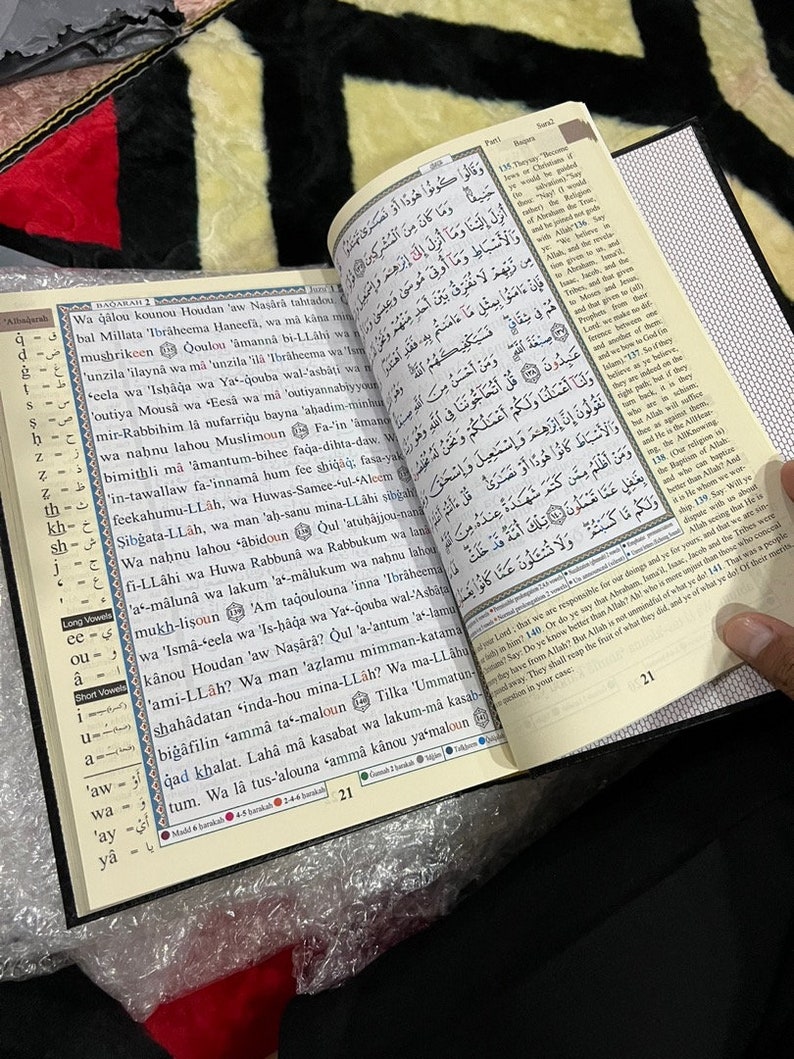 'Albaqarah
BAQARAH 2
Juzu' 1
q̇ = ق
ḍ = ض
ġ = غ
ṭ = ط
s = س
ṣ = ص
ḥ = ح
z = ز
ẓ = ظ
th = ث
kh = خ
sh = ش
j = ج
ʿ = ع
' = ء
Long Vowels
ee = ي
ou = و
â = ا
Short Vowels
i =
u =
a =
'aw = أَوْ
wa = وَ
'ay = أَيْ
yâ = يا
Wa q̇âlou kounou Houdan 'aw Naṣârâ tahtadou.
bal Millata 'Ibrâheema Ḥaneefâ, wa mâ kâna min
mushrikeen 135 Q̇oulou 'âmannâ bi-LLâhi
'unzila 'ilaynâ wa mâ 'unzila 'ilâ 'Ibrâheema wa 'Ism
ʿeela wa 'Isḥâq̇a wa Yaʿ-q̇ouba wal-'asbâṭi wa m
'outiya Mousâ wa ʿEesâ wa mâ 'outiyannabiyyoun
mir-Rabbihim lâ nufarriq̇u bayna 'aḥadim-minhu
wa naḥnu lahou Muslimoun 136 Fa-'in 'âmanou
bimithli mâ 'âmantum-bihee faq̇a-dihta-daw. Wa
'in-tawallaw fa-'innamâ hum fee shiq̇âq̇; fasa-yak
feekahumu-LLâh, wa Huwas-Samee-ʿul-ʿAleem
Ṣibġata-LLâh, wa man 'aḥ-sanu mina-LLâhi ṣibġah
Wa naḥnu lahou ʿâbidoun 138 Q̇ul 'atuḥâjjou-nanâ
fi-LLâhi wa Huwa Rabbunâ wa Rabbukum wa lanâ
'aʿ-mâlunâ wa lakum 'aʿ-mâlukum wa naḥnu lahou
mukh-liṣoun 139 'Am taq̇oulouna 'inna 'Ibrâheema
wa 'Ismâ-ʿeela wa 'Is-ḥâq̇a wa Yaʿ-q̇ouba wal-'Asbâṭa
kânou Houdan 'aw Naṣârâ? Q̇ul 'a-'antum 'aʿ-lamu
'ami-LLâh? Wa man 'aẓlamu mimman-katama
shahâdatan ʿinda-hou mina-LLâh? Wa ma-LLâhu
biġâfilin ʿammâ taʿ-maloun 140 Tilka 'Ummatun-
q̇ad khalat. Lahâ mâ kasabat wa lakum-mâ kasab-
tum. Wa lâ tus-'alouna ʿammâ kânou yaʿmaloun 141
Madd 6 ḥarakah 4-5 ḥarakah 2-4-6 ḥarakah
21
Ġunnah 2 ḥarakah Tafkheem
Part1
Baqara
Sura2
وَقَالُوا كُونُوا هُودًا أَوْ نَصَٰرَىٰ تَهْتَدُوا
حَنِيفًا وَمَا كَانَ مِنَ ٱلْمُشْرِكِينَ
أُنزِلَ إِلَيْنَا وَمَآ أُنزِلَ إِلَىٰٓ إِبْرَٰهِـۧمَ وَإِسْمَٰعِيلَ
وَٱلْأَسْبَاطِ وَمَآ أُوتِىَ مُوسَىٰ وَعِيسَىٰ
مِن رَّبِّهِمْ لَا نُفَرِّقُ بَيْنَ أَحَدٍ مِّنْهُمْ وَنَحْنُ
فَإِنْ ءَامَنُوا بِمِثْلِ مَآ ءَامَنتُم بِهِۦ فَقَدِ ٱهْتَدَوا
هُمْ فِى شِقَاقٍ فَسَيَكْفِيكَهُمُ ٱللَّهُ
صِبْغَةَ ٱللَّهِ وَمَنْ أَحْسَنُ مِنَ ٱللَّهِ
عَٰبِدُونَ ١٣٨ قُلْ أَتُحَآجُّونَنَا فِى ٱللَّهِ وَهُوَ
وَلَنَآ أَعْمَٰلُنَا وَلَكُمْ أَعْمَٰلُكُمْ وَنَحْنُ لَهُۥ
تَقُولُونَ إِنَّ إِبْرَٰهِـۧمَ وَإِسْمَٰعِيلَ وَإِسْحَٰقَ
وَٱلْأَسْبَاطَ كَانُوا هُودًا أَوْ نَصَٰرَىٰ قُلْ ءَأَنتُمْ
وَمَنْ أَظْلَمُ مِمَّن كَتَمَ شَهَٰدَةً عِندَهُۥ مِنَ
بِغَٰفِلٍ عَمَّا تَعْمَلُونَ ١٤٠ تِلْكَ أُمَّةٌ قَدْ خَلَتْ
وَلَكُم مَّا كَسَبْتُمْ وَلَا تُسْـَٔلُونَ عَمَّا كَانُوا
135.They say:"Become
Jews or Christians if
ye would be guided
(to salvation)."Say
thou: "Nay! (I would
rather) the Religion
of Abraham the True,
and he joined not gods
with Allah"136. Say
ye: "We believe in
Allah, and the revela-
tion given to us, and
to Abraham, Isma'il,
Isaac, Jacob, and the
Tribes, and that given
to Moses and Jesus,
and that given to (all)
Prophets from their
Lord: we make no dif-
ference between one
and another of them:
and we bow to God (in
Islam)."137. So if they
believe as ye believe,
they are indeed on the
right path; but if they
turn back, it is they
who are in schism;
but Allah will suffice
thee as against them,
and He is the AllHear-
ing, the AllKnowing.
138. (Our religion is)
the Baptism of Allah:
and who can baptize
better than Allah? And
it is He whom we wor-
ship. 139. Say: Will ye
dispute with us about
Allah, seeing that He is
and your Lord ; that we are responsible for our doings and ye for yours; and that we are sin-
(in faith) in him? 140. Or do ye say that Abraham, Isma'il, Isaac, Jacob and the Tribes were
Christians? Say: Do ye know better than Allah? Ah! who is more unjust than those who conceal
they have from Allah? But Allah is not unmindful of what ye do! 141. That was a people
passed away. They shall reap the fruit of what they did, and ye of what ye do! Of their merits,
no question in your case:
21